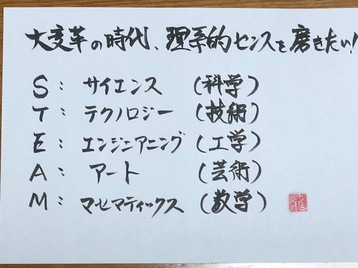 大変革の時代、理系的センスを磨きたい!
S: サイエンス (科学)
T: テクノロジー (技術)
E: エンジニアニング (工学)
A: アート (芸術)
M: マセマティックス (数学)